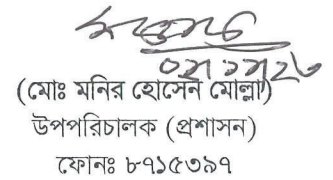 (মোঃ মনির হোসেন মোল্লা)
উপপরিচালক (প্রশাসন)
ফোনঃ ৮৭১৫৩৯৭